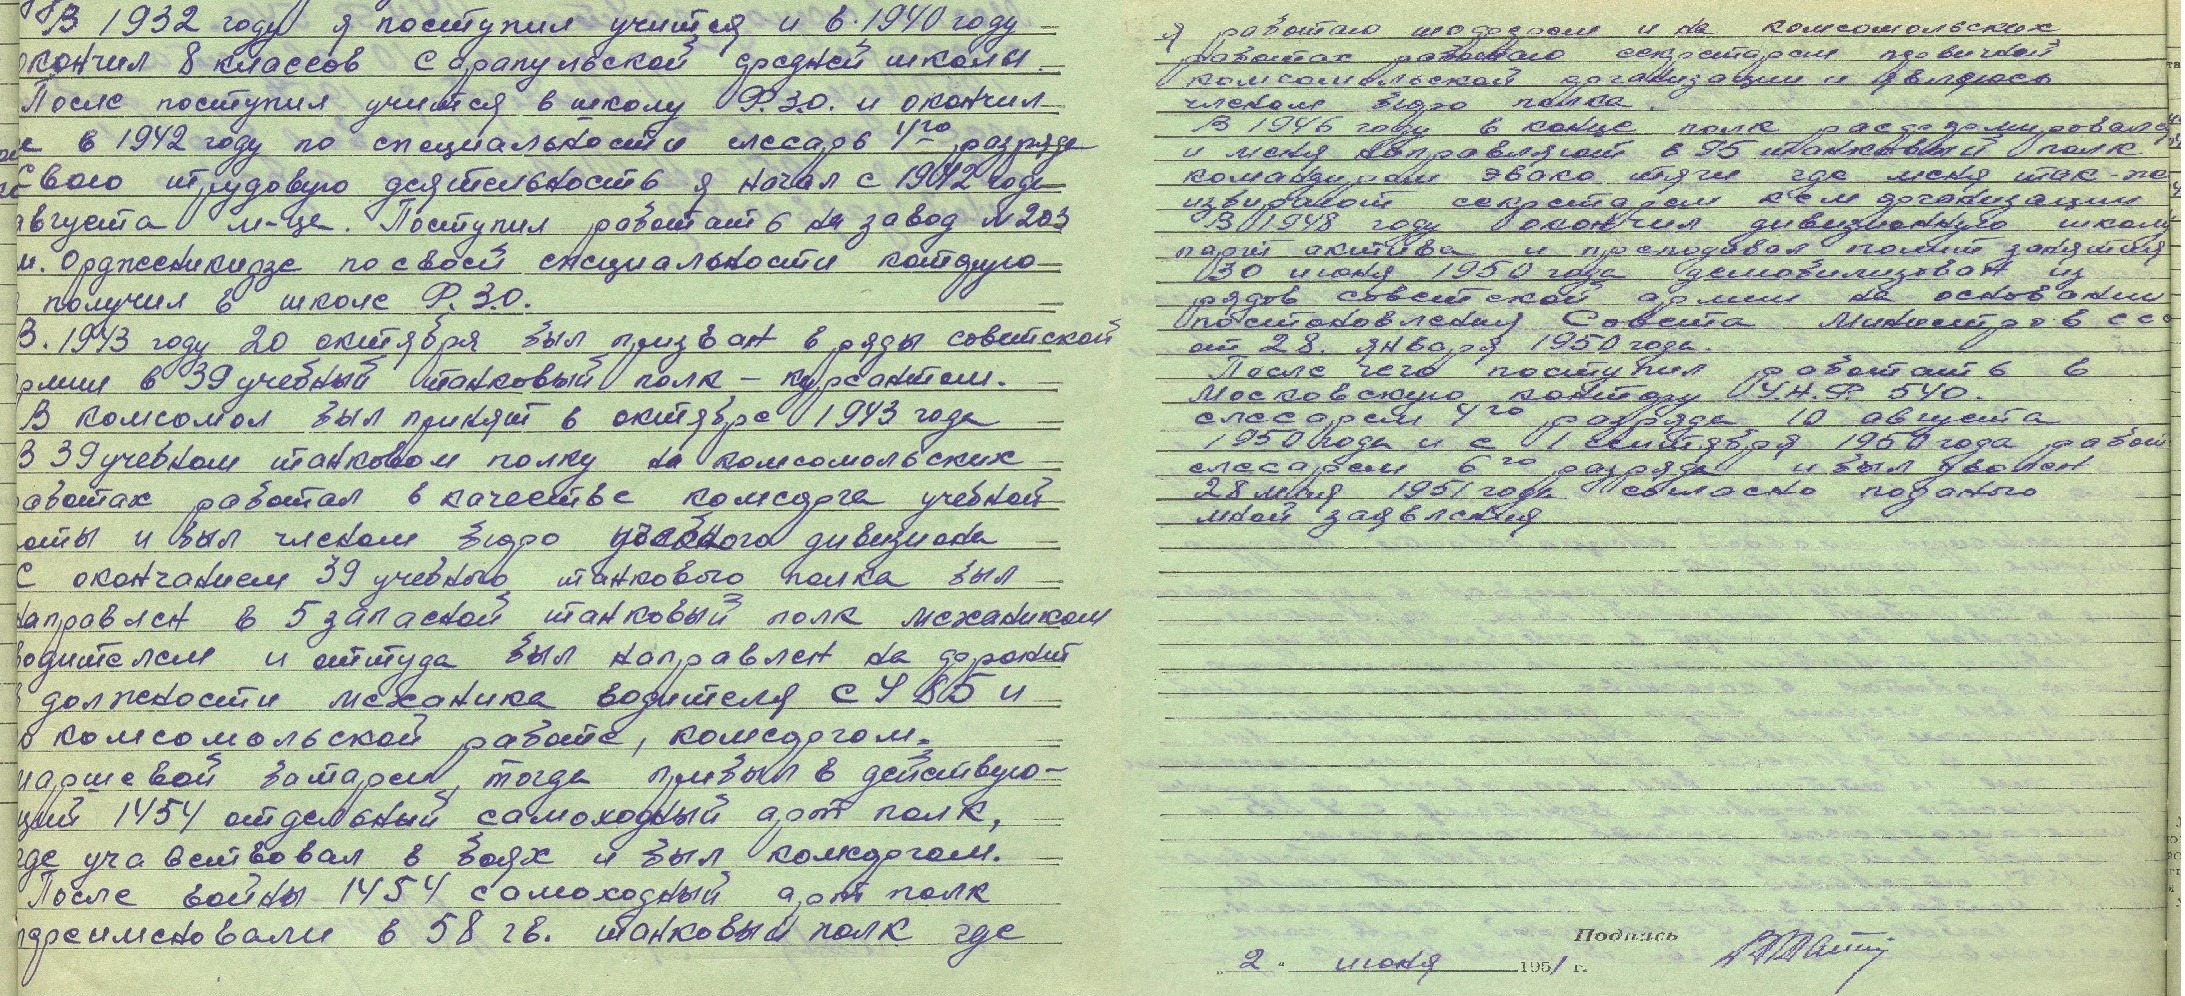 В 1932 году я поступил учится и в. 1940 году
окончил 8 классов Сарапульской средней школы.
После поступил учится в школу Ф.З.О. и окончил
в 1942 году по специальности слесарь 4го разряда
Свою трудовую деятельность я начал с 1942 года
августа м-це. Поступил работать на завод N 203
им. Орджсеникидзе по своей специальности которую
получил в школе Ф.З.О.
В. 1943 году 20 октября был призван в ряды советской
армии в 39 учебный танковый полк – курсантом.
В комсомол был принят в октябре 1943 года
В 39 учебном танковом полку на комсомольских
работах работал в качестве комсорга учебной
роты и был членом бюро учебного дивизиона
С окончанием 39 учебного танкового полка был
направлен в 5 запасной танковый полк механиком
водителем и оттуда был направлен на фронт
в должности механика водителя СУ 85 и
по комсомольской работе, комсоргом.
маршевой батареи, тогда прибыл в действую-
щий 1454 отдельный самоходный арт полк,
где учавствовал в боях и был комсоргом.
После войны 1454 самоходный арт полк
переименовали в 58 гв. танковый полк где
я работаю шофером и на комсомольских
работах работаю секретарем первичной
комсомольской организации и являюсь
членом бюро полка.
В 1946 году в конце полк расформировали
и меня направляют в 95 танковый полк
командиром эвако тяги где меня так-же
избирают секретарем к с м организации
В 1948 году окончил дивизионную школу
парт актива и преподавал полит занятия
30 июня 1950 года демобилизован из
рядов советской армии на основании
постановления Совета Министров ссс
от 28. января 1950 года.
После чего поступил работать в
Московскую контору У.Н.Ф 540.
слесарем 4го разряда 10 августа
1950 года и с 1 сентября 1950 года работ
слесарем 6го разряда и был уволен
28 мая 1951 года согласно поданого
мной заявления
Подпись
„ 2 “ июня 1951 г.